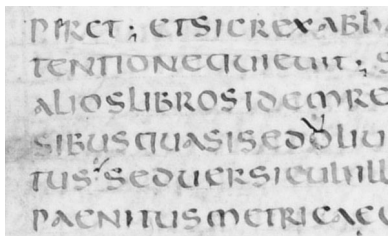 peret ; et sic rex ab h
tentione quieuit ; s
alios libros idem re
sibus quasi sed oliu
tus sed uersiculi ill
paenitus metricae c